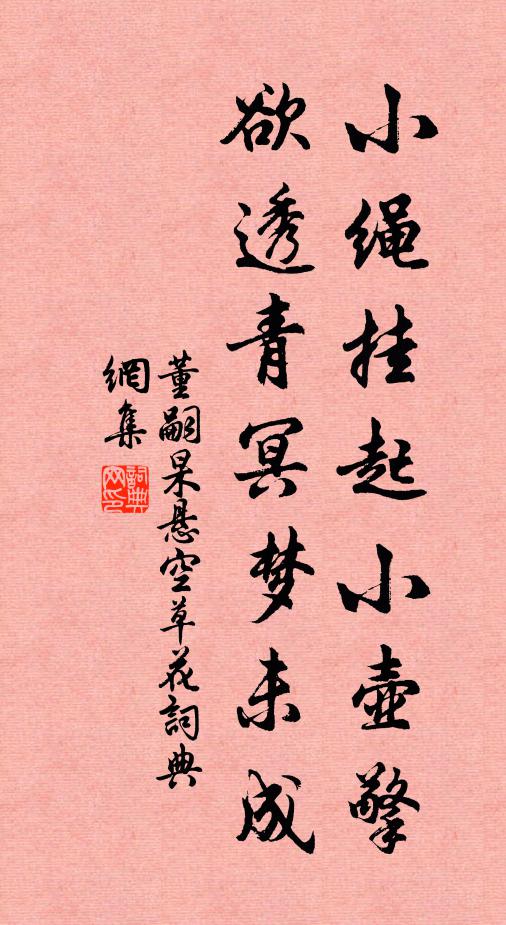 小绳挂起小壶擎
欲透青冥梦未成
董嗣杲悬空草花詞典
網集
詞典網印